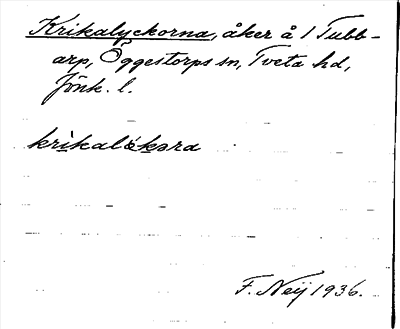 Krikalyckorna, åker å 1 Tubb-
arp, Öggestorps sn, Tveta hd,
Jönk. l.
krikalökəra
F. Neij 1936.